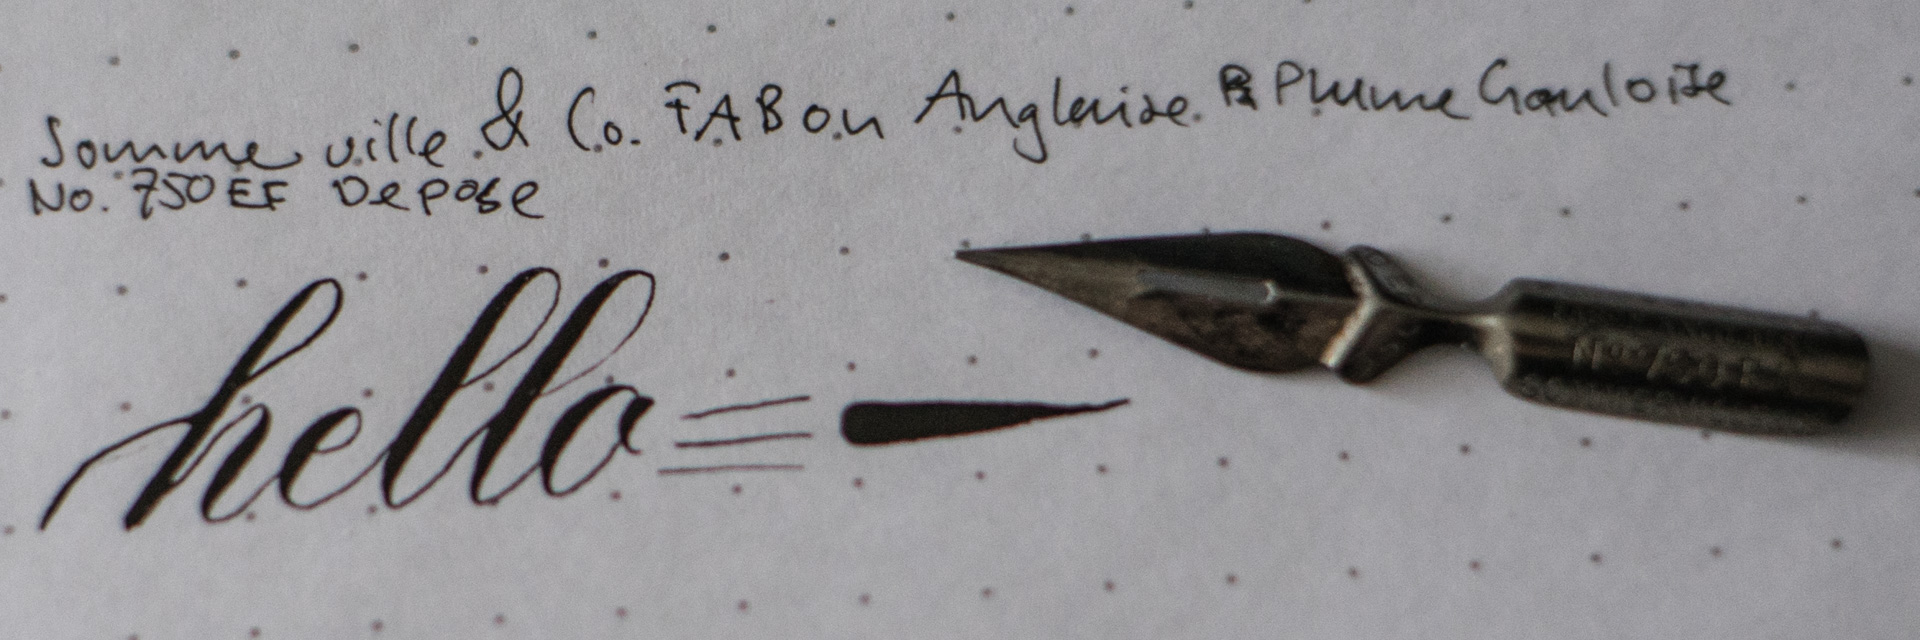 Sommerville & Co. FABon Anglaise. Plume Gauloise
No. 750EF Depose
hello